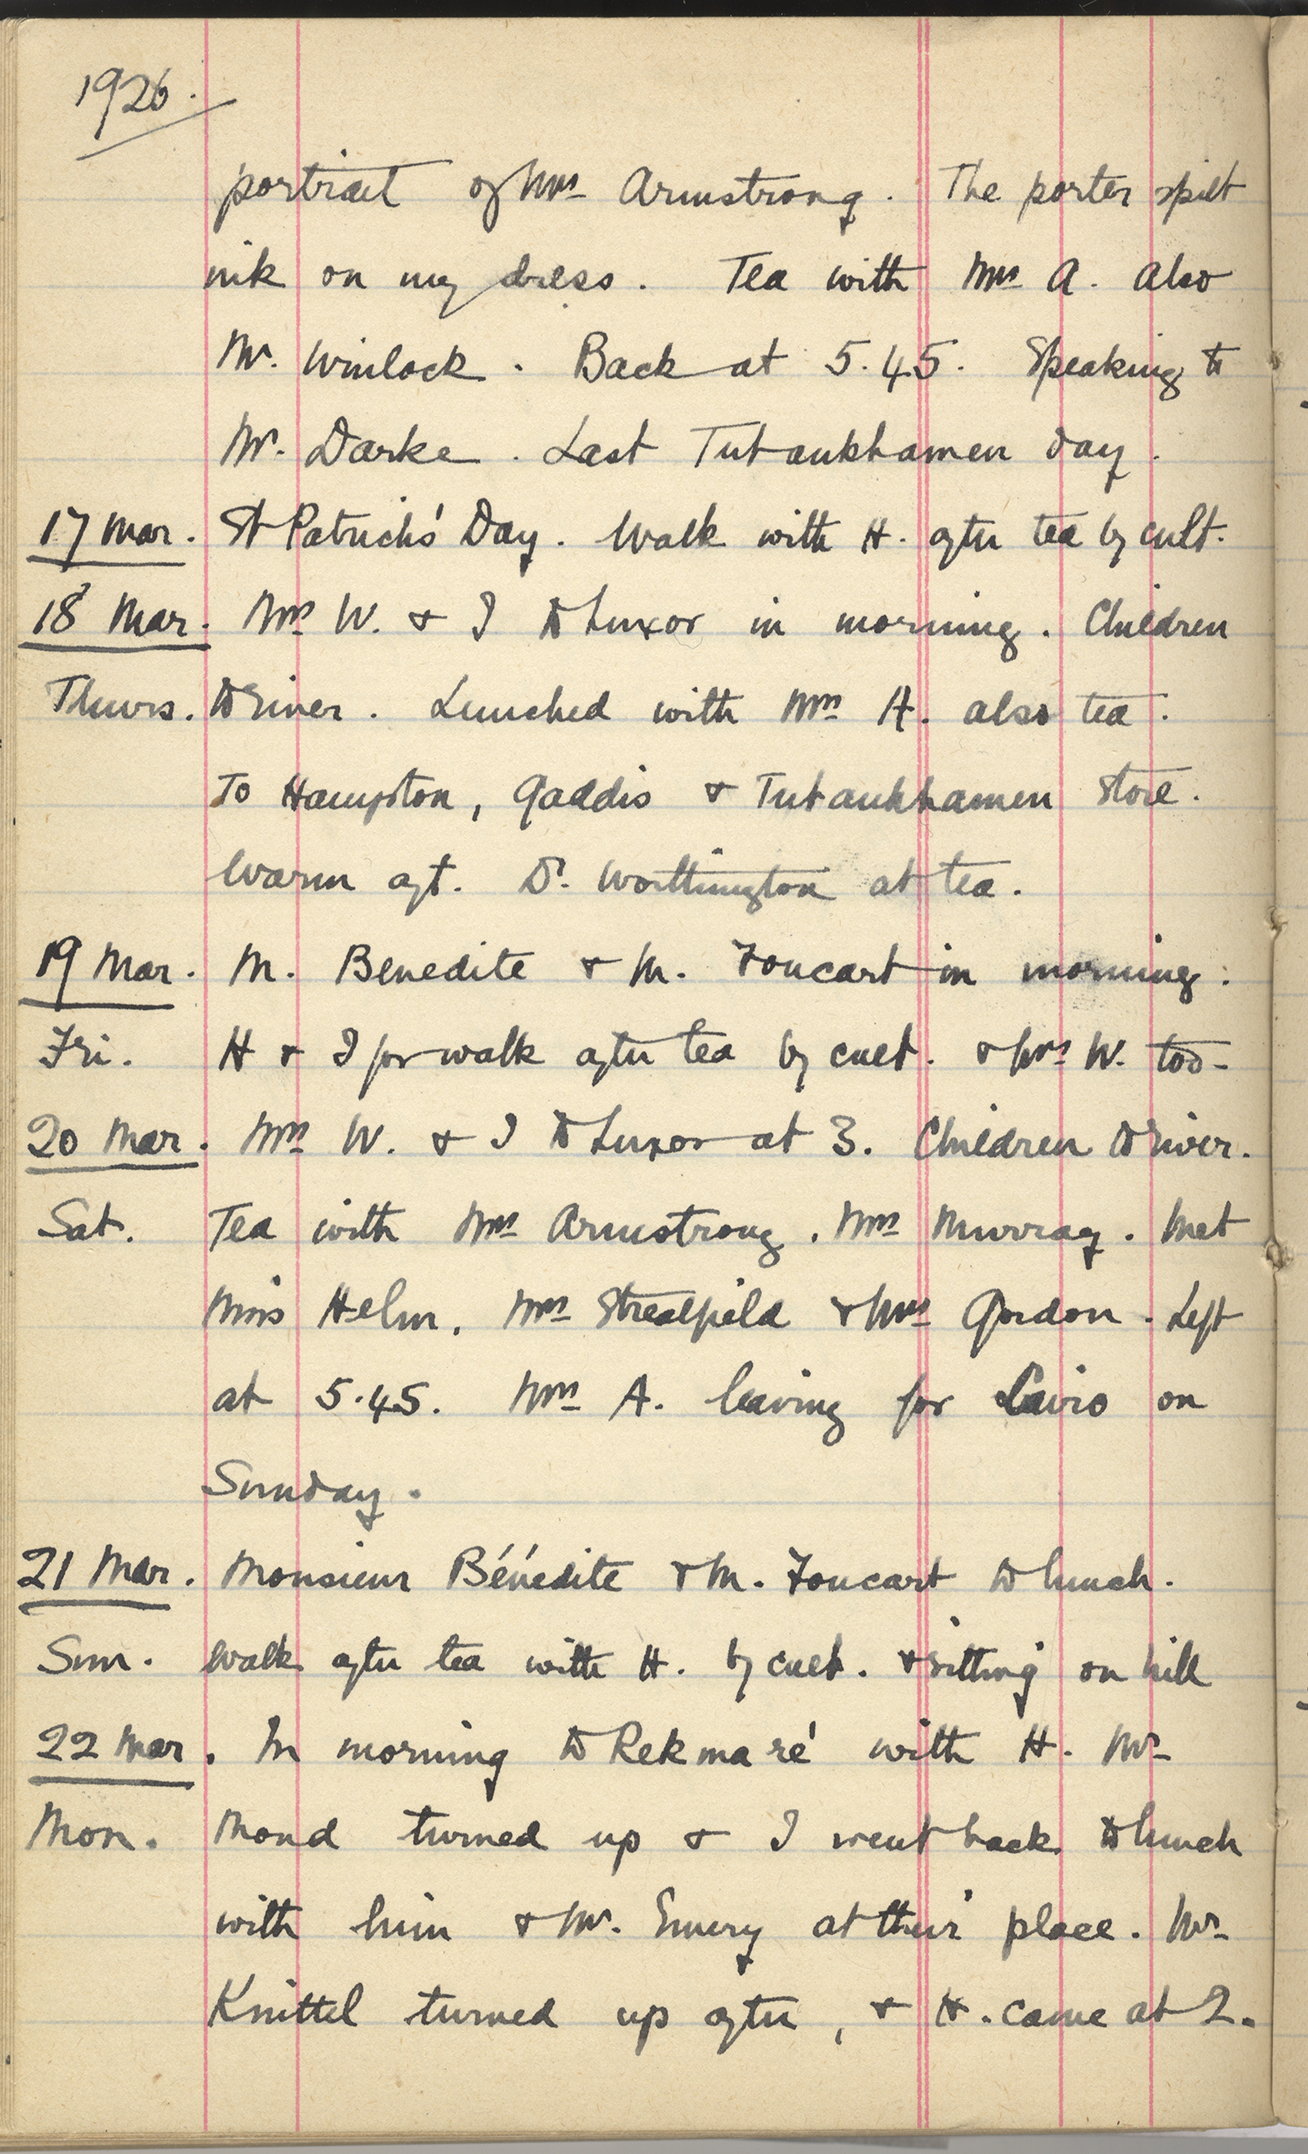 1926.
portrait of Mrs Armstrong. The porter spilt
ink on my dress. Tea with Mrs A. also
Mr. Winlock. Back at 5.45. Speaking to
Mr. Darke. Last Tutankhamen day.
17 Mar. St Patrick's Day. Walk with H. after tea by cult.
18 Mar. Mrs W. & I to Luxor in morning. Children
Thurs. to river. Lunched with Mrs A. also tea.
To Hampton, Gaddis & Tutankhamen Store.
Warm aft. Dr. Worthington at tea.
19 Mar. M. Benedite & M. Foucart in morning.
Fri. H & I for walk after tea by cult. & Mrs W. too-
20 Mar. Mrs W. & I to Luxor at 3. Children to river.
Sat. Tea with Mrs Armstrong. Mrs Murray. Met
Miss Helm. Mrs Streatfield & Mrs Gordon. Left
at 5.45. Mrs A. leaving for Cairo on
Sunday.
21 Mar. Monsieur Bénédite & M. Foucart to lunch.
Sun. Walk after tea with H. by cult. & sitting on hill
22 Mar. In morning to Rekmaré with H. Mr
Mon. Mond turned up & I went back to lunch
with him & Mr. Emery at their place. Mr
Knittel turned up after, & H. came at 2.